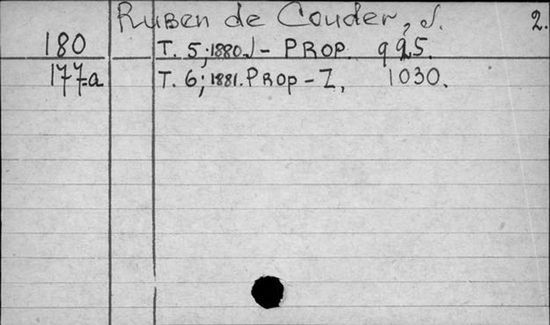 Ruben de Couder, J. 2.
180 T. 5; 1880. J - PROP. 995.
177-a T. 6; 1881. PROP - Z, 1030.